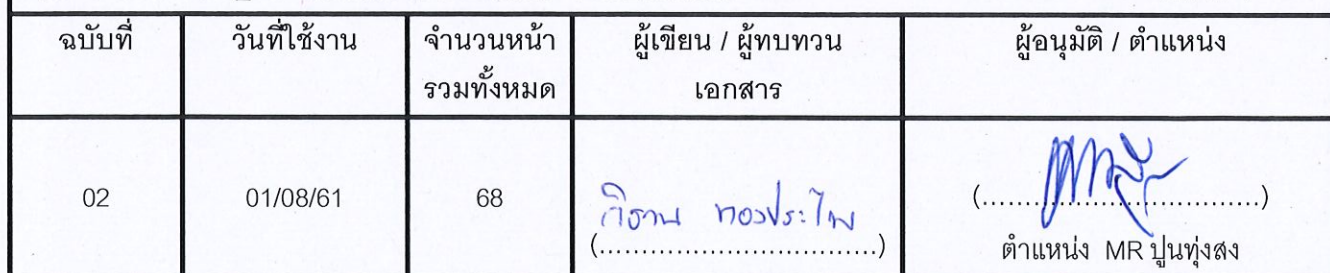 ฉบับที่
วันที่ใช้งาน
จำนวนหน้า
รวมทั้งหมด
ผู้เขียน / ผู้ทบทวน
เอกสาร
ผู้อนุมัติ / ตำแหน่ง
02
01/08/61
68
ทองประไพ
(................................)
(................................)
ตำแหน่ง MR ปูนทุ่งสง